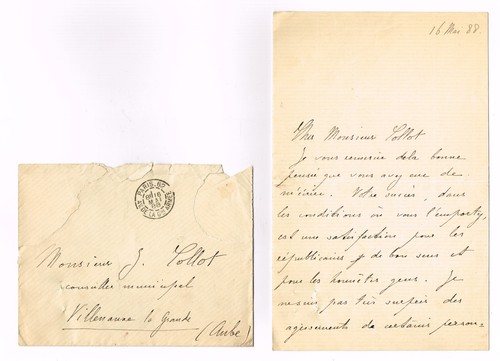 16 Mai 88.
Cher Monsieur Collot
Je vous remercie de la bonne
pensée que vous avez eue de
m'écrire. Votre succès, dans
les conditions où vous l'emportez,
est une satisfaction pour les
républicains de bon sens et
pour les honnêtes gens. Je
ne suis pas très surpris des
agissements de certains person-
PARIS-82
MAI
88
Monsieur J. Collot
conseiller municipal
Villenauxe la Grande
(Aube)